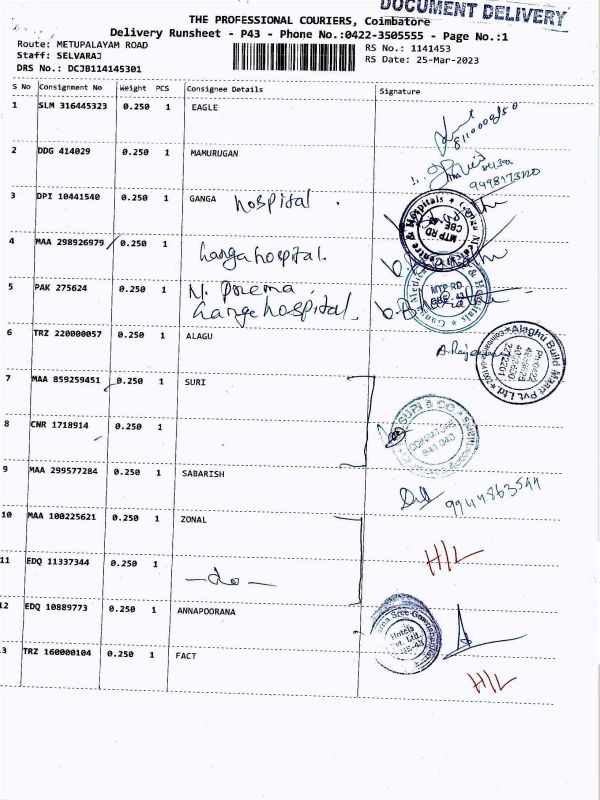 DOCUMENT DELIVERY
THE PROFESSIONAL COURIERS, Coimbatore
Delivery Runsheet - P43 - Phone No.:0422-3505555 - Page No.:1
Route: METUPALAYAM ROAD RS No.: 1141453
Staff: SELVARAJ RS Date: 25-Mar-2023
DRS No.: DCJB114145301
S No Consignment No Weight PCS Consignee Details Signature
1 SLM 316445323 0.250 1 EAGLE
2 DDG 414029 0.250 1 MAMURUGAN
3 DPI 10441540 0.250 1 GANGA hospital.
MTP RD
4 MAA 298926979 0.250 1 Ganga hospital.
5 PAK 275624 0.250 1 N. Prema,
Ganga hospital.
MTP RD
6 TRZ 220000057 0.250 1 ALAGU
Alaghu Build Maart Pvt. Ltd
7 MAA 859259451 0.250 1 SURI
SURI & CO
8 CNR 1718914 0.250 1
9 MAA 299577284 0.250 1 SABARISH
9944863544
10 MAA 100225621 0.250 1 ZONAL
H/L
11 EDQ 11337344 0.250 1 -do-
12 EDQ 10889773 0.250 1 ANNAPOORANA
Hotels
3 TRZ 160000104 0.250 1 FACT
H/L